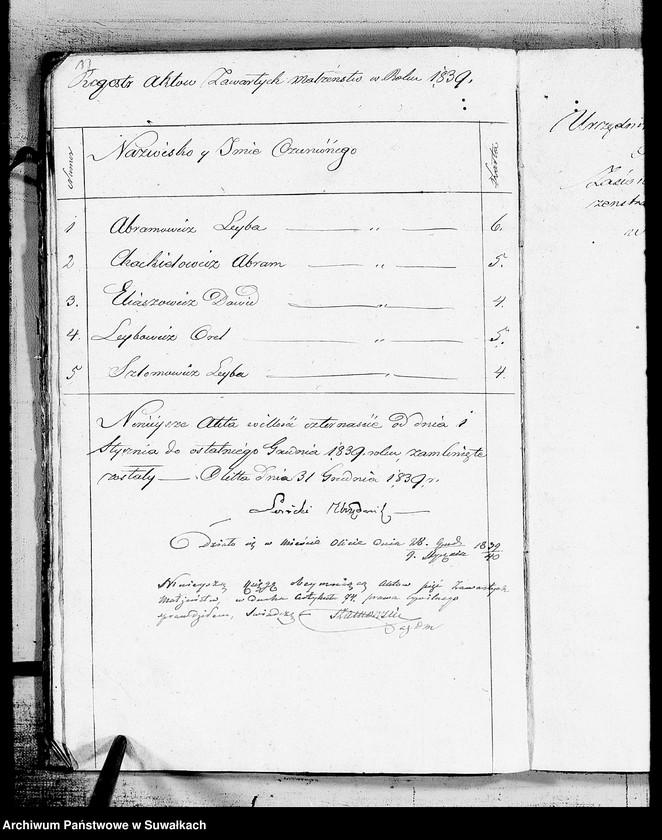 Regestr Aktow Zawartych Małżeństw w Roku 1839.
Numer Nazwisko y Imie Czuniönego Karta
1 Abramowicz Leyba — „ — 6.
2 Chackielowicz Abram — „ — 5.
3. Eliaszowicz Dawid — „ — 4.
4. Leybowicz Orel — „ — 5.
5 Szlomowicz Leyba — „ — 4.
Ninieysze Akta w ilosci czternascie od dnia 1
Stycznia do ostatniego Grudnia 1839 roku zamkniete
zostały — Olitta Dnia 31 Grudnia 1839 r.
Działo się w Mieście Olicie dnia 28. Grud. 1839
9. Stycznia 40
Ninieyszą Księgę Aktow Zawartych
Małżeństw, w duchu Artykułu prawa Cywilnego
sprawdziłem, Świadczę
Urzędni
Zasie
zenstw
w
Archiwum Państwowe w Suwałkach